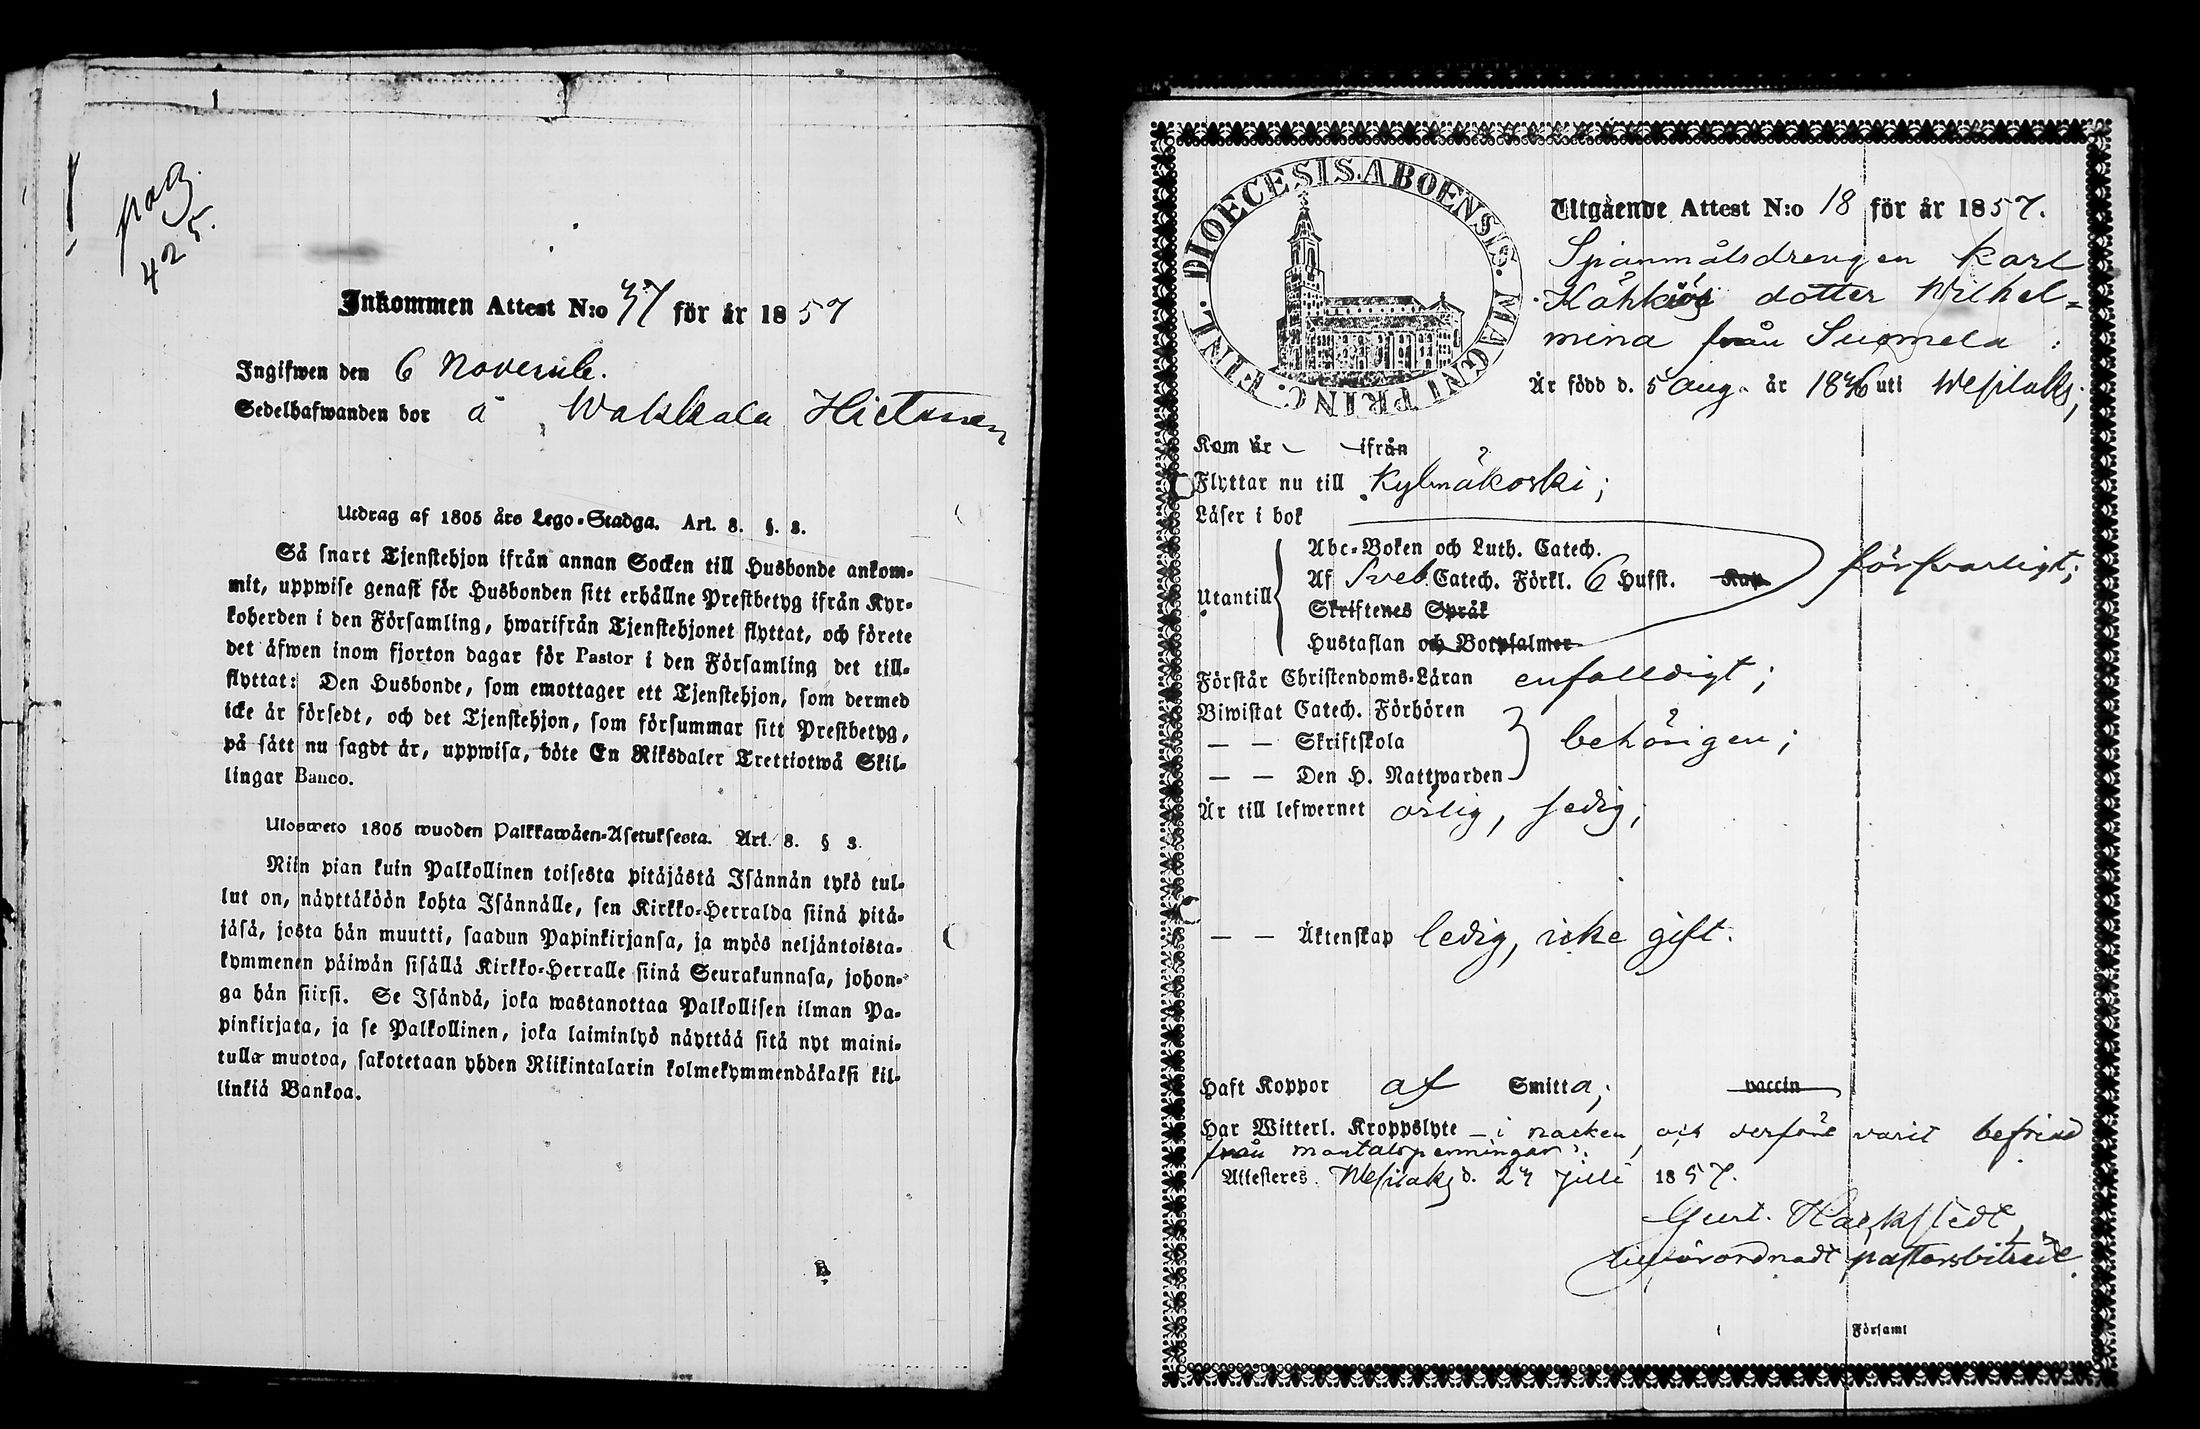 pag.
425.
Inkommen Attest N:o 37 för år 1857
Ingifwen den 6 Novemb.
Sedelhafwanden bor å Wakkala Hietanen
Utdrag af 1805 års Lego-Stadga. Art. 8. §. 3.
Så snart Tjenstehjon ifrån annan Socken till Husbonde ankom-
mit, uppwise genast för Husbonden sitt erhållne Prestbetyg ifrån Kyr-
koherden i den Församling, hwarifrån Tjenstehjonet flyttat, och förete
det äfwen inom fjorton dagar för Pastor i den Församling det till-
flyttat: Den Husbonde, som emottager ett Tjenstehjon, som dermed
icke är försedt, och det Tjenstehjon, som försummar sitt Prestbetyg,
på sätt nu sagdt är, uppwisa, böte En Riksdaler Trettiotwå Skil-
lingar Banco.
Ulosweto 1805 wuoden Palkkawäen-Asetuksesta. Art. 8. § 3.
Niin pian kuin Palkollinen toisesta pitäjästä Isännän tykö tul-
lut on, näyttäköön kohta Isännälle, sen Kirkko-Herralda siinä pitä-
jäsä, josta hän muutti, saadun Papinkirjansa, ja myös neljäntoista-
kymmenen päiwän sisällä Kirkko-Herralle siinä Seurakunnasa, johon-
ga hän siirsi. Se Isändä, joka wastanottaa Palkollisen ilman Pa-
pinkirjata, ja se Palkollinen, joka laiminlyö näyttää sitä nyt maini-
tulla muotoa, sakotetaan yhden Riikintalarin kolmekymmendäkaksi kil-
linkiä Bankoa.
FINL. DIOECESIS. ABOENSIS. MAGNI PRINC.
Utgående Attest N:o 18 för år 1857.
Spånmålsdrengen Karl
Kähkös dotter Wilhel=
mina från Suomela
Är född d. 5 aug. år 1836 uti Wesilaks;
Kom år ifrån
Flyttar nu till Kylmäkoski;
Läser i bok
Utantill
Abc-Boken och Luth. Catech.
Af Sveb. Catech. Förkl. 6 Hufst. Kap
Skriftenes Språk
Hustaflan och Botpsalmer
försvarligt;
Förstår Christendoms-Läran enfalldigt;
Biwistat Catech. Förhören
— — Skriftskola behörigen;
— — Den H. Nattwarden
Är till lefwernet ärlig, sedig;
— — Äktenskap ledig, icke gift.
Haft Koppor af Smitta; vaccin
Har Witterl. Kroppslyte – i nacken, och derföre varit befriad
från mantalspenningar;
Attesteres Wesilaks d. 27 Julii 1857.
Gust.
tillförordnadt pastorsbiträde.
Församl